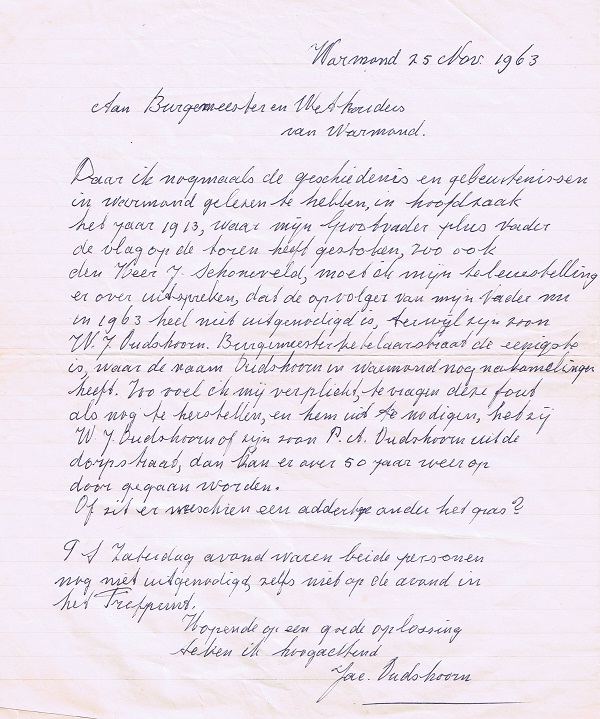 Warmond 25 Nov. 1963
Aan Burgemeester en Wethouders
van Warmond.
Daar ik nogmaals de geschiedenis en gebeurtenissen
in Warmond gelezen te hebben, in hoofdzaak
het jaar 1913, waar mijn Grootvader plus Vader
de vlag op de toren heeft gestoken, zoo ook
den Heer J. Schoneveld, moet ik mijn teleurstelling
er over uitspreken, dat de opvolger van mijn Vader nu
in 1963 heel niet uitgenodigd is, terwijl zijn zoon
W. J. Oudshoorn. Burgemeester Ketelaarstraat de eenigste
is, waar de naam Oudshoorn in Warmond nog nakomelingen
heeft. Zoo voel ik mij verplicht, te vragen deze fout
als nog te herstellen, en hem uit te nodigen, het zij
W J Oudshoorn of zijn zoon P. A. Oudshoorn uit de
dorpstraat, dan kan er over 50 jaar weer op
door gegaan worden.
Of zit er misschien een addertje onder het gras?
P S Zaterdag avond waren beide personen
nog niet uitgenodigd, zelfs niet op de avond in
het Trefpunt.
Hopende op een goede oplossing
teken ik hoogachtend
Jac. Oudshoorn